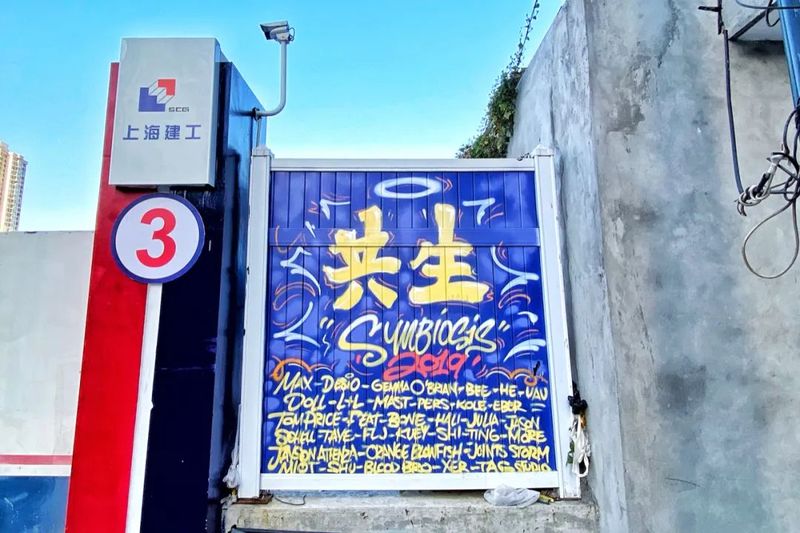 SCG
上海建工
3
共生
"SYMBIOSIS"
2019
MAX - DESIO - GEMMA O'BRIAN - BEE - HE - VAU
DOLL - L+L - MAST - PERS - KOLE - EBER
TOM PRICE - FEAT - BONE - HALI - JULIA - JASON
TAYE - FLJ - KUEY - SHI-TING - MORE
JAYSON ATIENZA - ORANGE BLOWFISH - JOINTS STORM
MIOT - SHU - BLOOD BRO - XER - TAG STUDIO